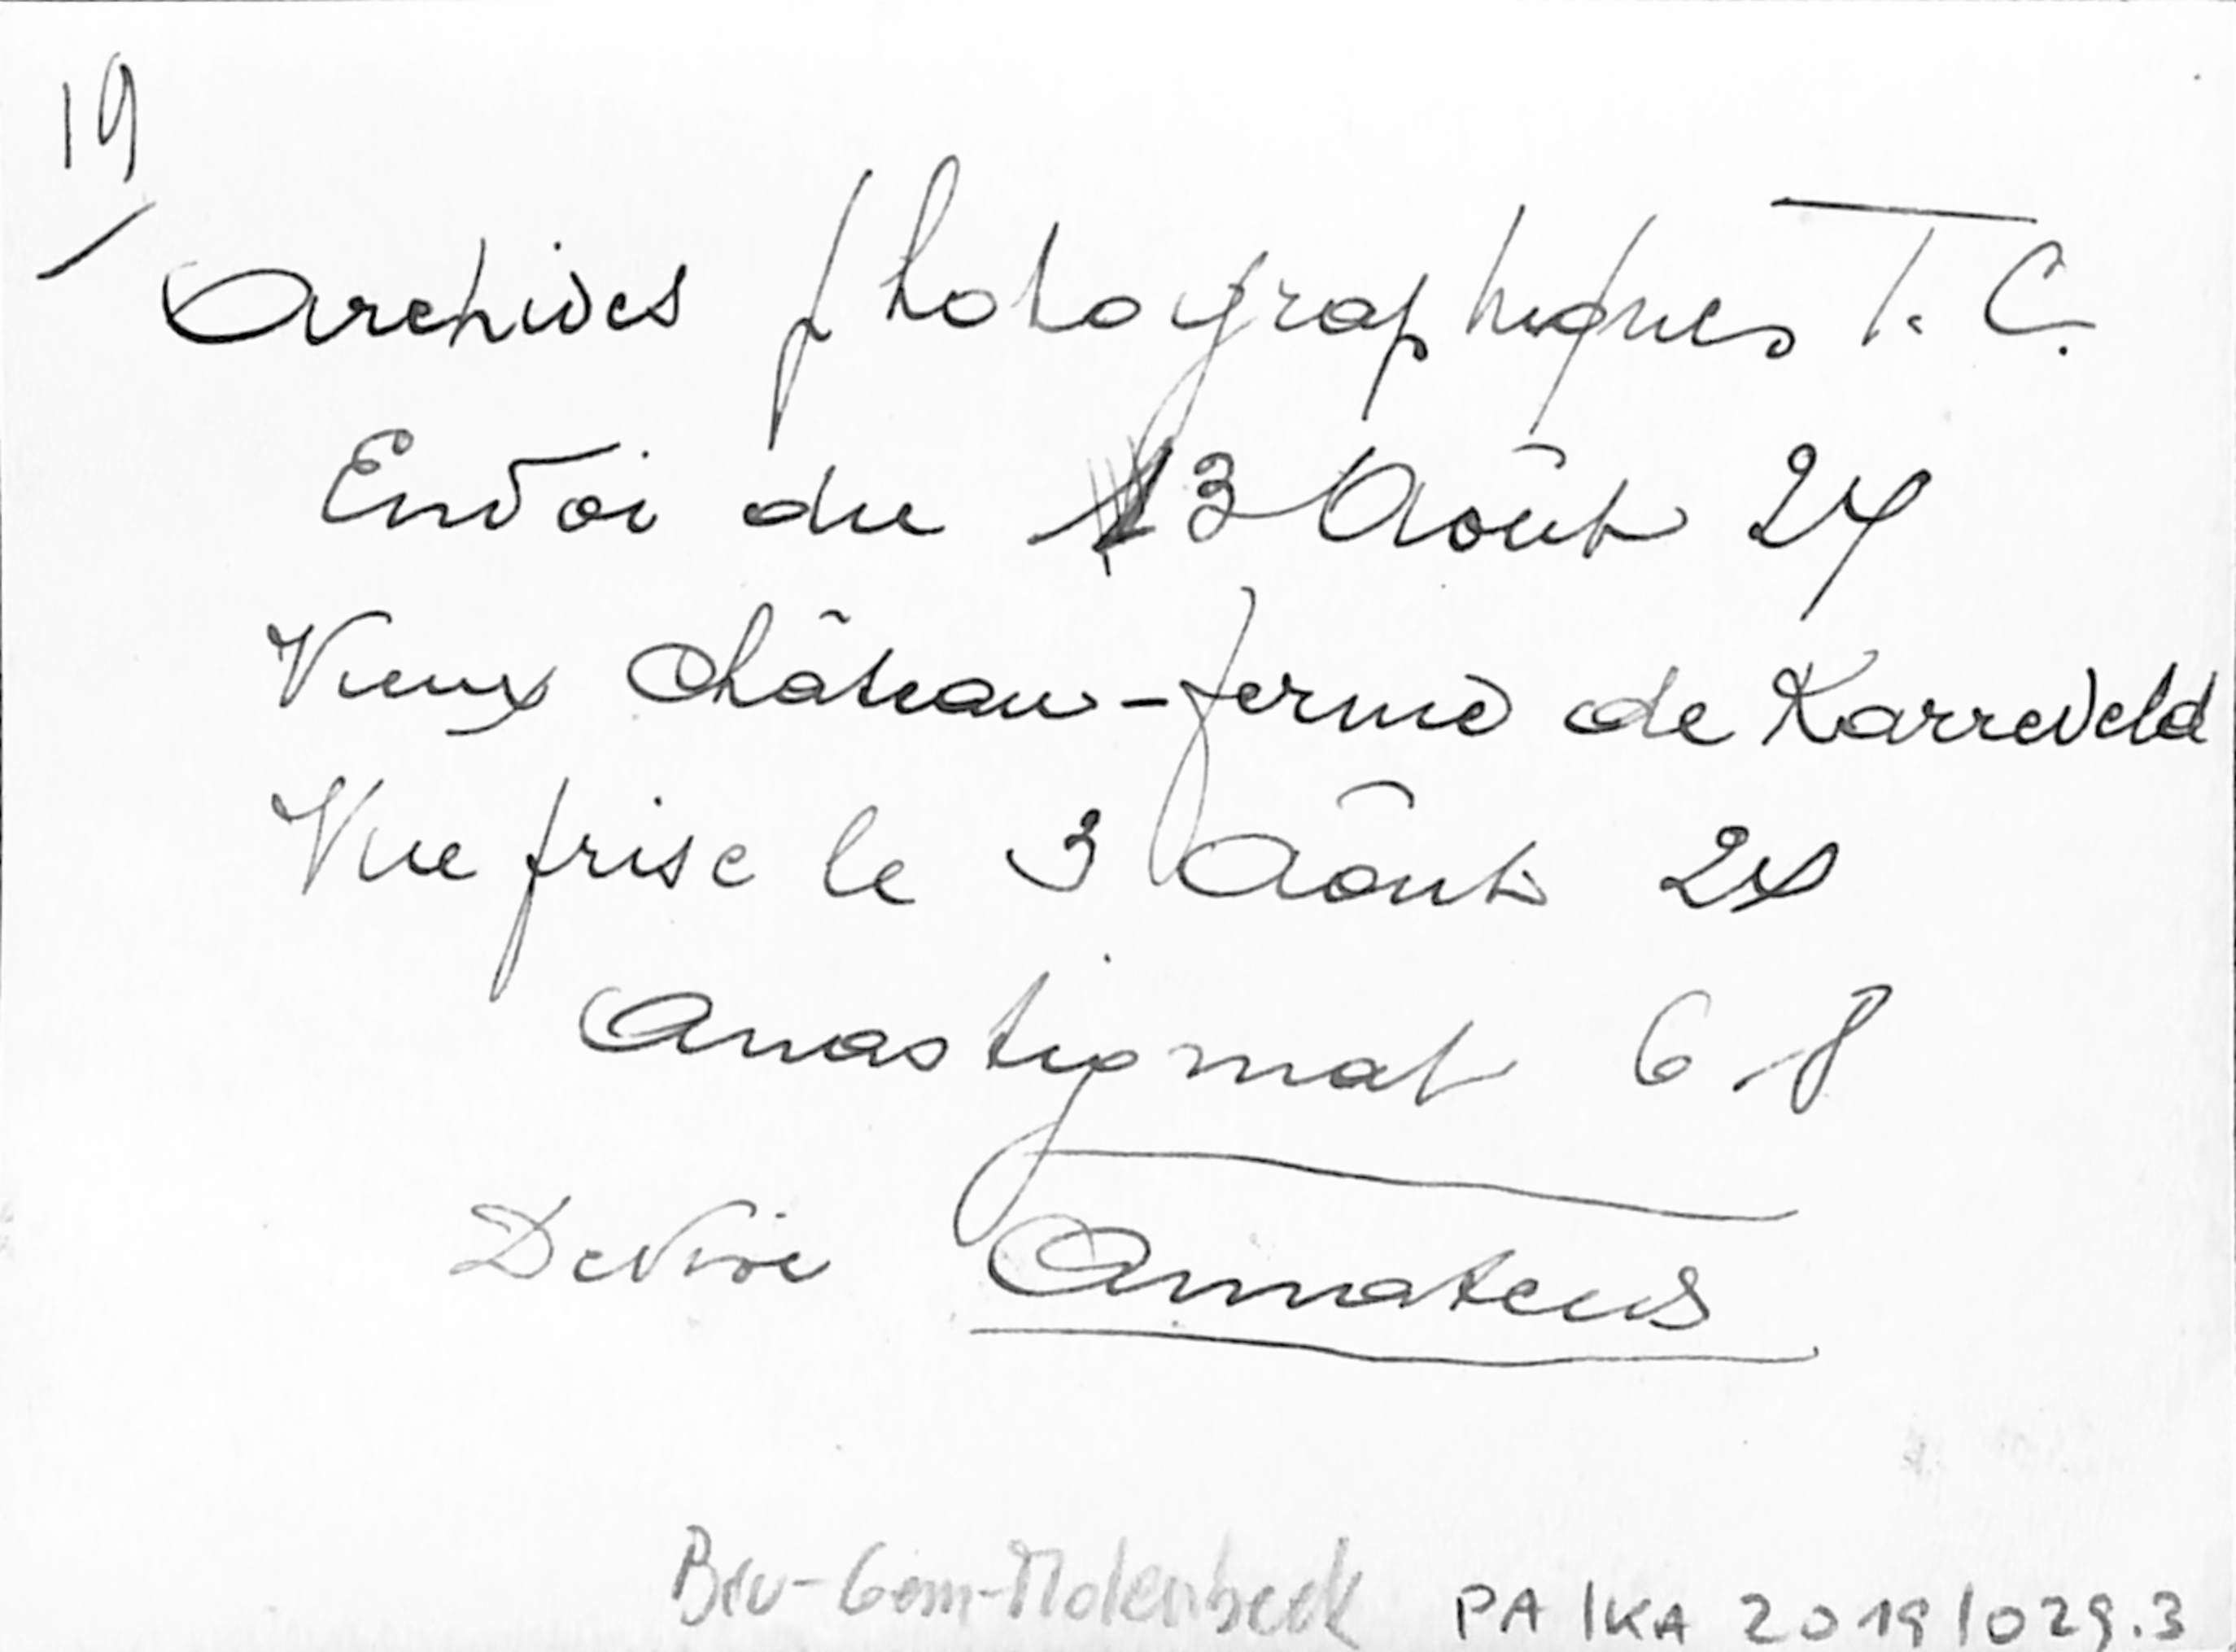 19
Archives photographiques T. C.
Envoi du 13 Août 24
Vieux château-ferme de Karreveld
Vue prise le 3 Août 24
Anastigmat 6.8
Devise Amateurs
Bru-Gem-Molenbeek PA/KA 2019/029.3